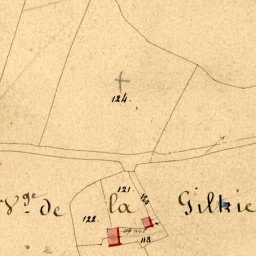 124.
121
V.ge de la Gilkie
122
118